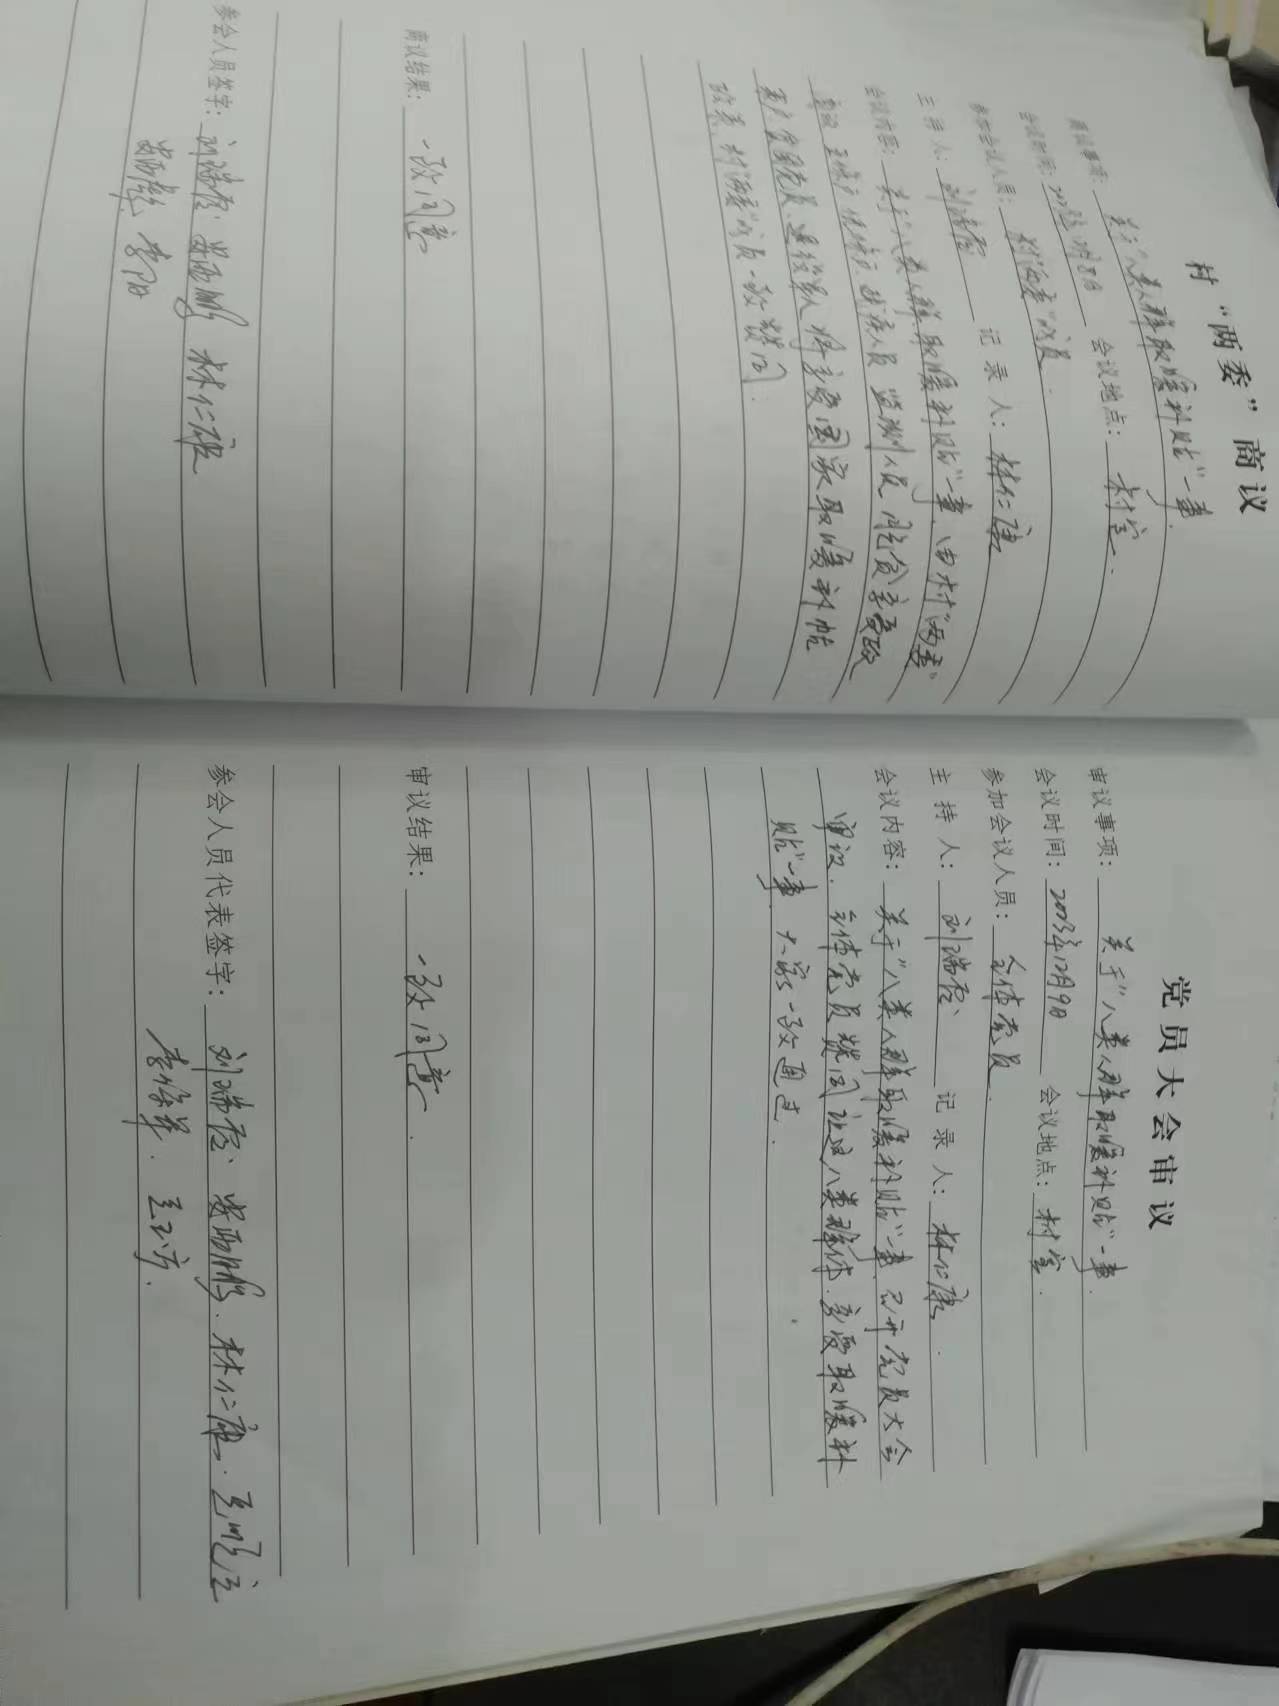 村“两委”商议
商议事项：关于“八类人群取暖补贴”一事.
会议时间： 会议地点：村室.
参加会议人员：村“两委”成员.
主持人：刘瑞 记录人：林仁康
会议内容：关于“八类人群取暖补贴”一事.由村“两委”
商议 五保户 低保户 残疾人员 监测人员 脱贫享受政
策户 党员 退役军人 将享受国家取暖补帖
政策.村“两委”成员一致赞同.
商议结果：一致同意
参会人员签字：刘瑞 鹏 林仁康
李阳
党员大会审议
审议事项：关于“八类人群取暖补贴”一事.
会议时间：2023年12月9日 会议地点：村室.
参加会议人员：全体党员.
主持人：刘瑞 记录人：林仁康.
会议内容：关于“八类人群取暖补贴”一事.召开党员大会
审议.全体党员赞同让这八类群体.享受取暖补
贴”一事 大家一致通过.
审议结果：一致同意.
参会人员代表签字：刘瑞 鹏.林仁康.
李 王